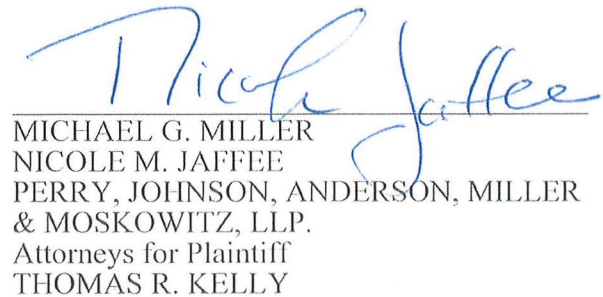 Nicole Jaffee
MICHAEL G. MILLER
NICOLE M. JAFFEE
PERRY, JOHNSON, ANDERSON, MILLER
& MOSKOWITZ, LLP.
Attorneys for Plaintiff
THOMAS R. KELLY